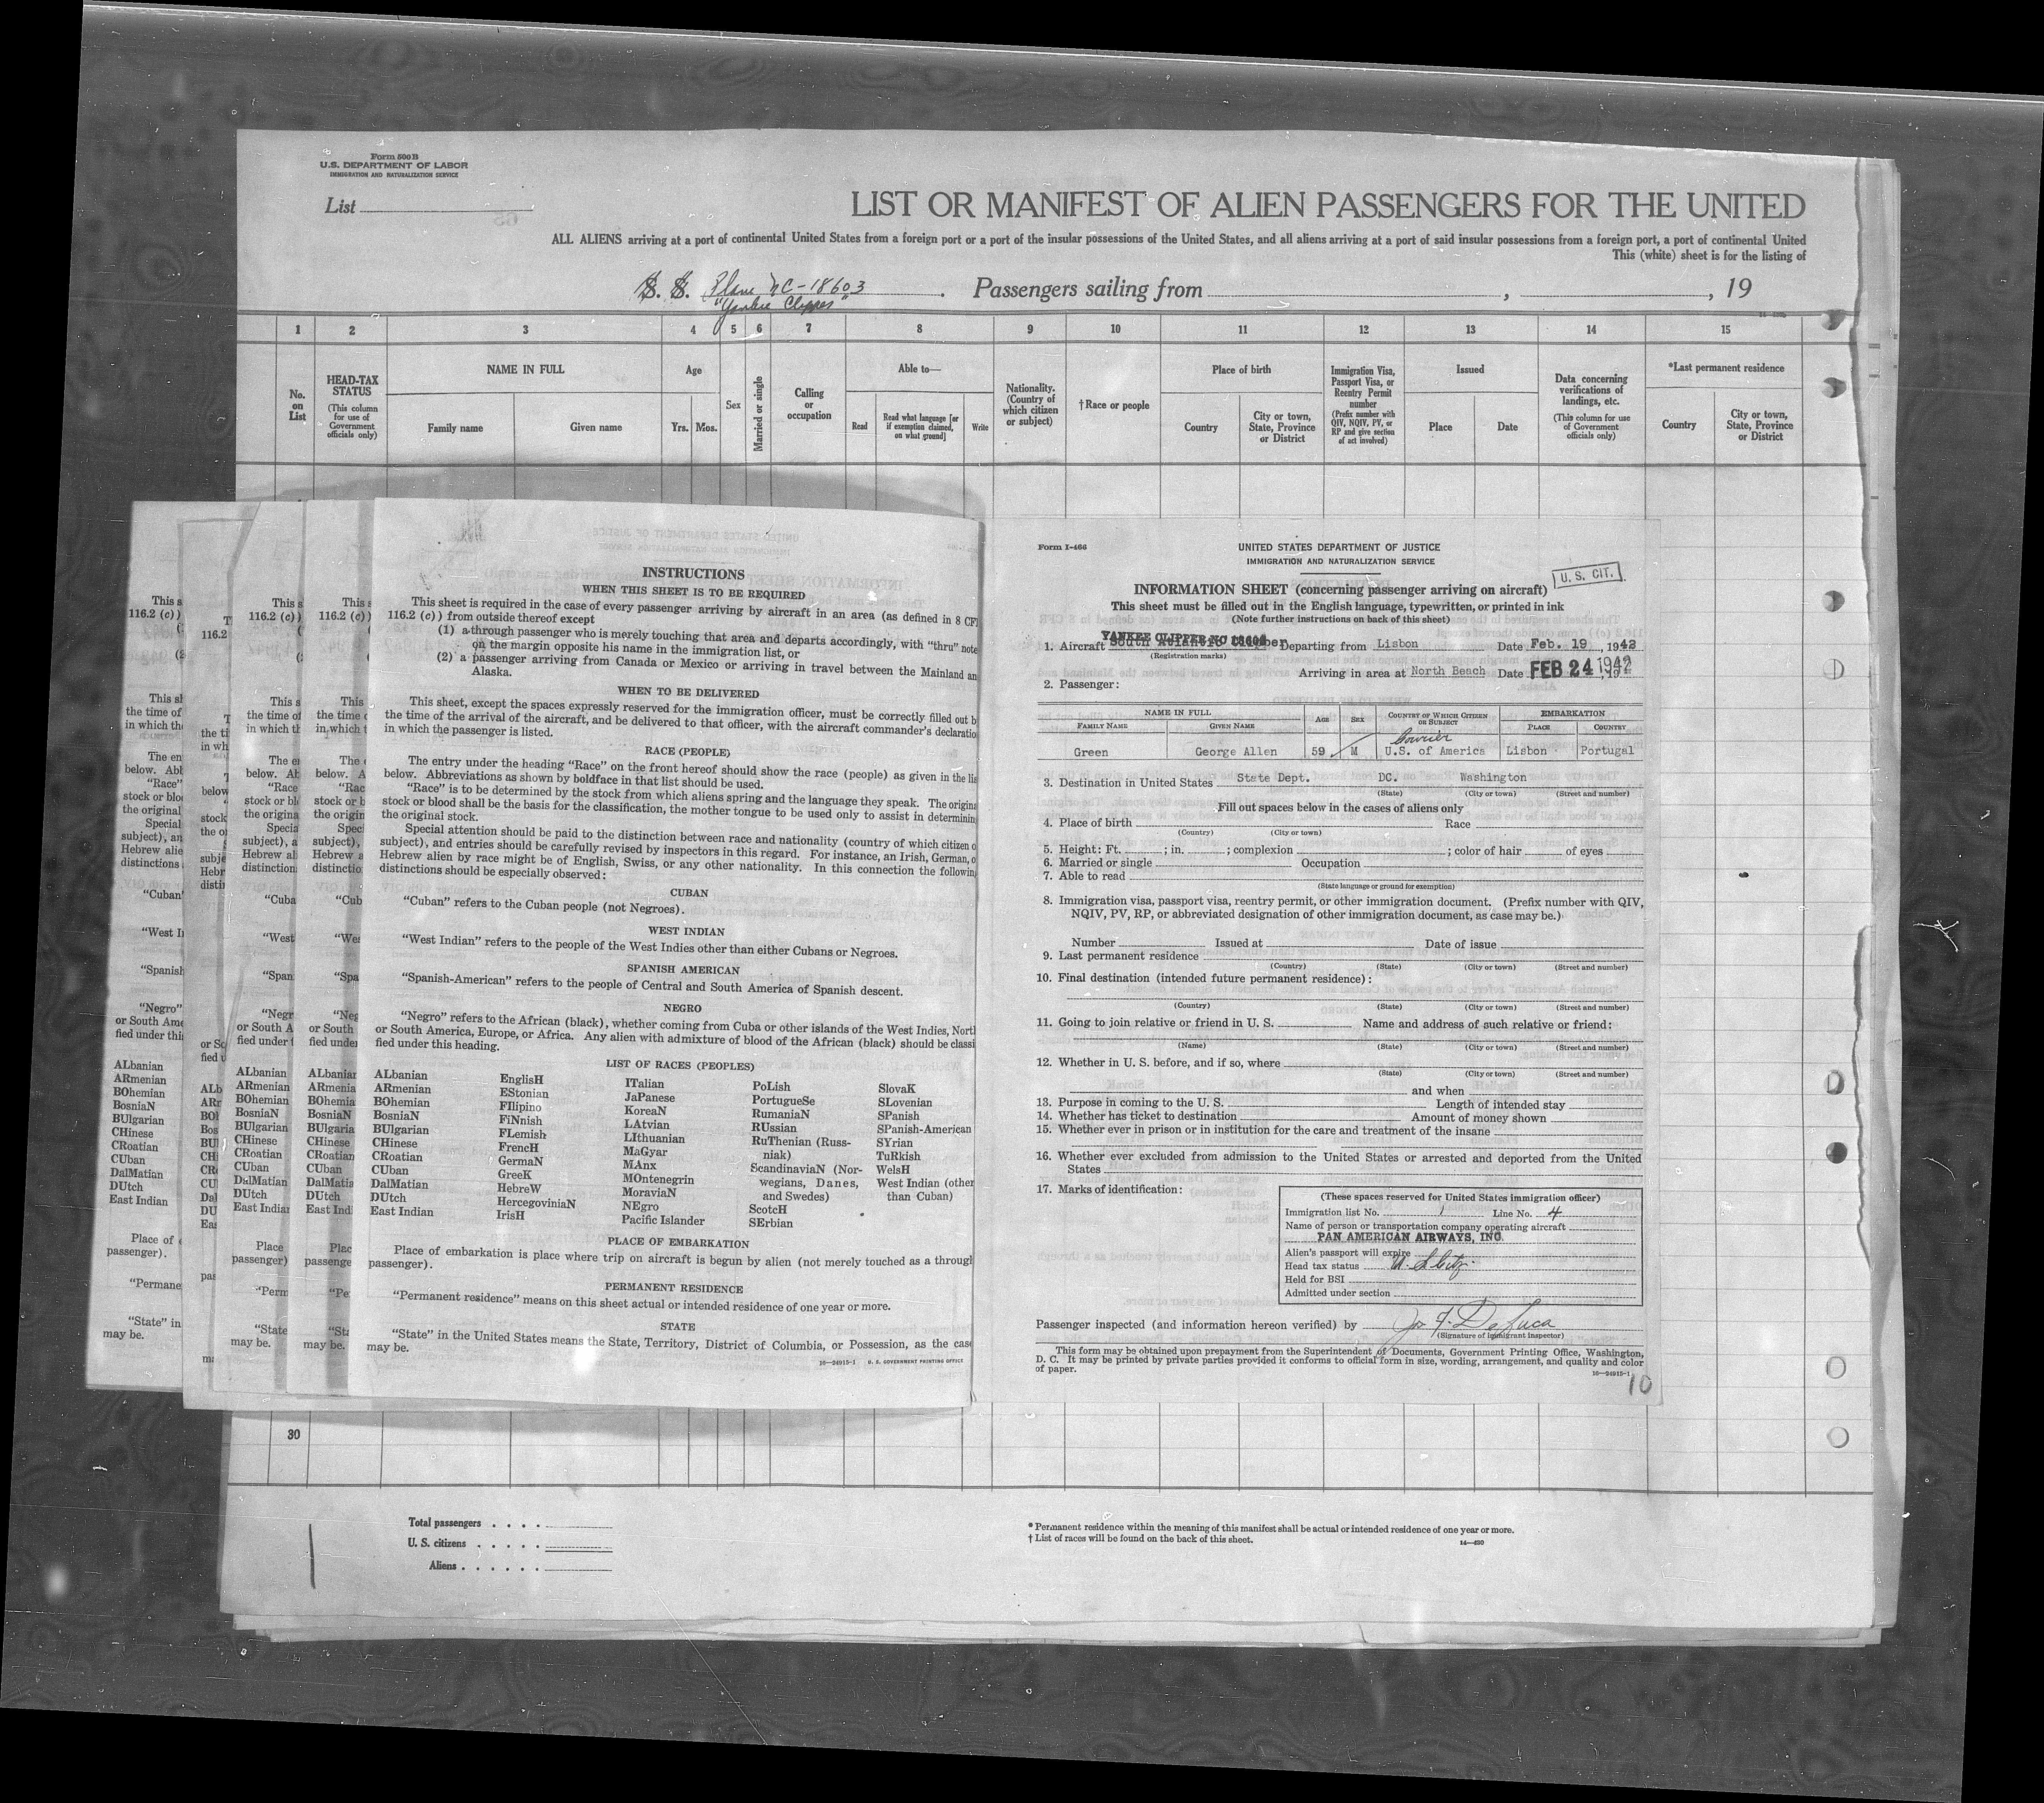 Form 500 B
U.S. DEPARTMENT OF LABOR
IMMIGRATION AND NATURALIZATION SERVICE
List
LIST OR MANIFEST OF ALIEN PASSENGERS FOR THE UNITED
ALL ALIENS arriving at a port of continental United States from a foreign port or a port of the insular possessions of the United States, and all aliens arriving at a port of said insular possessions from a foreign port, a port of continental United
This (white) sheet is for the listing of
S. S. Plane NC-18603 Passengers sailing from , , 19
"Yankee Clipper"
1 2 3 4 5 6 7 8 9 10 11 12 13 14 15
No. on List
HEAD-TAX STATUS
(This column for use of Government officials only)
NAME IN FULL
Family name Given name
Age
Yrs. Mos.
Sex
Married or single
Calling or occupation
Able to—
Read
Read what language [or if exemption claimed, on what ground]
Write
Nationality. (Country of which citizen or subject)
†Race or people
Place of birth
Country
City or town, State, Province or District
Immigration Visa, Passport Visa, or Reentry Permit number
(Prefix number with QIV, NQIV, PV, or RP and give section of act involved)
Issued
Place Date
Data concerning verifications of landings, etc.
(This column for use of Government officials only)
*Last permanent residence
Country
City or town, State, Province or District
INSTRUCTIONS
WHEN THIS SHEET IS TO BE REQUIRED
This sheet is required in the case of every passenger arriving by aircraft in an area (as defined in 8 CF
116.2 (c) ) from outside thereof except
(1) a through passenger who is merely touching that area and departs accordingly, with "thru" note
on the margin opposite his name in the immigration list, or
(2) a passenger arriving from Canada or Mexico or arriving in travel between the Mainland an
Alaska.
WHEN TO BE DELIVERED
This sheet, except the spaces expressly reserved for the immigration officer, must be correctly filled out b
the time of the arrival of the aircraft, and be delivered to that officer, with the aircraft commander's declaratio
in which the passenger is listed.
RACE (PEOPLE)
The entry under the heading "Race" on the front hereof should show the race (people) as given in the lis
below. Abbreviations as shown by boldface in that list should be used.
"Race" is to be determined by the stock from which aliens spring and the language they speak. The origina
stock or blood shall be the basis for the classification, the mother tongue to be used only to assist in determinin
the original stock.
Special attention should be paid to the distinction between race and nationality (country of which citizen o
subject), and entries should be carefully revised by inspectors in this regard. For instance, an Irish, German, o
Hebrew alien by race might be of English, Swiss, or any other nationality. In this connection the followin
distinctions should be especially observed:
CUBAN
"Cuban" refers to the Cuban people (not Negroes).
WEST INDIAN
"West Indian" refers to the people of the West Indies other than either Cubans or Negroes.
SPANISH AMERICAN
"Spanish-American" refers to the people of Central and South America of Spanish descent.
NEGRO
"Negro" refers to the African (black), whether coming from Cuba or other islands of the West Indies, Nort
or South America, Europe, or Africa. Any alien with admixture of blood of the African (black) should be classi
fied under this heading.
LIST OF RACES (PEOPLES)
ALbanian
ARmenian
BOhemian
BosniaN
BUlgarian
CHinese
CRoatian
CUban
DalMatian
DUtch
East Indian
EnglisH
EStonian
FIlipino
FiNnish
FLemish
FrencH
GermaN
GreeK
HebreW
HercegoviniaN
IrisH
ITalian
JaPanese
KoreaN
LAtvian
LIthuanian
MaGyar
MAnx
MOntenegrin
MoraviaN
NEgro
Pacific Islander
PoLish
PortugueSe
RumaniaN
RUssian
RuThenian (Russ-
niak)
ScandinaviaN (Nor-
wegians, Danes,
and Swedes)
ScotcH
SErbian
SlovaK
SLovenian
SPanish
SPanish-American
SYrian
TuRkish
WelsH
West Indian (other
than Cuban)
PLACE OF EMBARKATION
Place of embarkation is place where trip on aircraft is begun by alien (not merely touched as a throug
passenger).
PERMANENT RESIDENCE
"Permanent residence" means on this sheet actual or intended residence of one year or more.
STATE
"State" in the United States means the State, Territory, District of Columbia, or Possession, as the case
may be.
16—24915-1 U. S. GOVERNMENT PRINTING OFFICE
Form I-466
UNITED STATES DEPARTMENT OF JUSTICE
IMMIGRATION AND NATURALIZATION SERVICE
U. S. CIT.
INFORMATION SHEET (concerning passenger arriving on aircraft)
This sheet must be filled out in the English language, typewritten, or printed in ink
(Note further instructions on back of this sheet)
YANKEE CLIPPER NC 18603
1. Aircraft South Atlantic Departing from Lisbon Date Feb. 19, 1942
(Registration marks)
Arriving in area at North Beach Date FEB 24 1942
2. Passenger:
NAME IN FULL
FAMILY NAME GIVEN NAME
AGE SEX
COUNTRY OF WHICH CITIZEN OR SUBJECT
EMBARKATION
PLACE COUNTRY
Courier
Green George Allen 59 M U.S. of America Lisbon Portugal
3. Destination in United States State Dept. DC. Washington
(State) (City or town) (Street and number)
Fill out spaces below in the cases of aliens only
4. Place of birth Race
(Country) (City or town)
5. Height: Ft. ; in. ; complexion ; color of hair of eyes
6. Married or single Occupation
7. Able to read
(State language or ground for exemption)
8. Immigration visa, passport visa, reentry permit, or other immigration document. (Prefix number with QIV,
NQIV, PV, RP, or abbreviated designation of other immigration document, as case may be.)
Number Issued at Date of issue
9. Last permanent residence
(Country) (State) (City or town) (Street and number)
10. Final destination (intended future permanent residence):
(Country) (State) (City or town) (Street and number)
11. Going to join relative or friend in U. S. Name and address of such relative or friend:
(Name) (State) (City or town) (Street and number)
12. Whether in U. S. before, and if so, where
(State) (City or town) (Street and number)
and when
13. Purpose in coming to the U. S. Length of intended stay
14. Whether has ticket to destination Amount of money shown
15. Whether ever in prison or in institution for the care and treatment of the insane
16. Whether ever excluded from admission to the United States or arrested and deported from the United
States
17. Marks of identification:
(These spaces reserved for United States immigration officer)
Immigration list No. 1 Line No. 4
Name of person or transportation company operating aircraft
PAN AMERICAN AIRWAYS, INC.
Alien's passport will expire
Head tax status U. S. Citz.
Held for BSI
Admitted under section
Passenger inspected (and information hereon verified) by Jos. F. DeLuca
(Signature of immigrant inspector)
This form may be obtained upon prepayment from the Superintendent of Documents, Government Printing Office, Washington,
D. C. It may be printed by private parties provided it conforms to official form in size, wording, arrangement, and quality and color
of paper.
16—24915-1
10
30
Total passengers
U. S. citizens
Aliens
* Permanent residence within the meaning of this manifest shall be actual or intended residence of one year or more.
† List of races will be found on the back of this sheet.
14—430